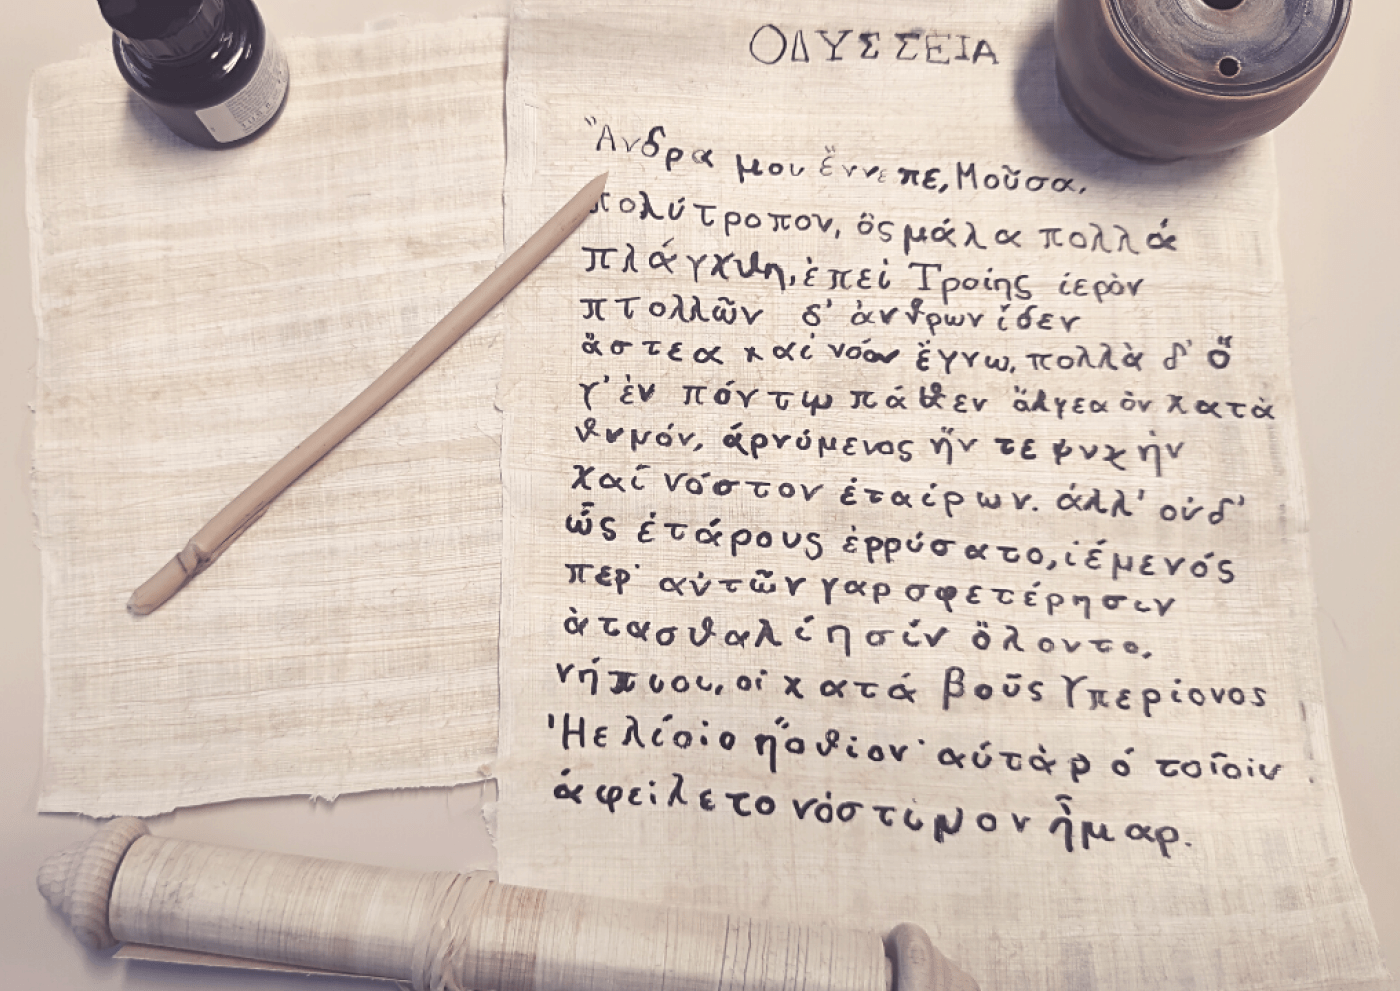 ΟΔΥΣΣΕΙΑ
Ἄνδρα μου ἔννεπε, Μοῦσα,
πολύτροπον, ὃς μάλα πολλά
πλάγχθη, ἐπεὶ Τροίης ἱερὸν
πτολλῶν δ' ἀνθρων ἴδεν
ἄστεα καί νόον ἔγνω, πολλὰ δ' ὅ
γ' ἐν πόντῳ πάθεν ἄλγεα ὃν κατὰ
θυμόν, ἀρνύμενος ἥν τε ψυχὴν
καί νόστον ἑταίρων. ἀλλ' οὐδ'
ὧς ἑτάρους ἐρρύσατο, ἱέμενός
περ· αὐτῶν γαρ σφετέρησιν
ἀτασθαλίησίν ὄλοντο,
νήπιοι, οἳ κατά βοῦς Ὑπερίονος
Ἠελίοιο ἤσθιον· αὐτὰρ ὁ τοῖσιν
ἀφείλετο νόστιμον ἦμαρ.